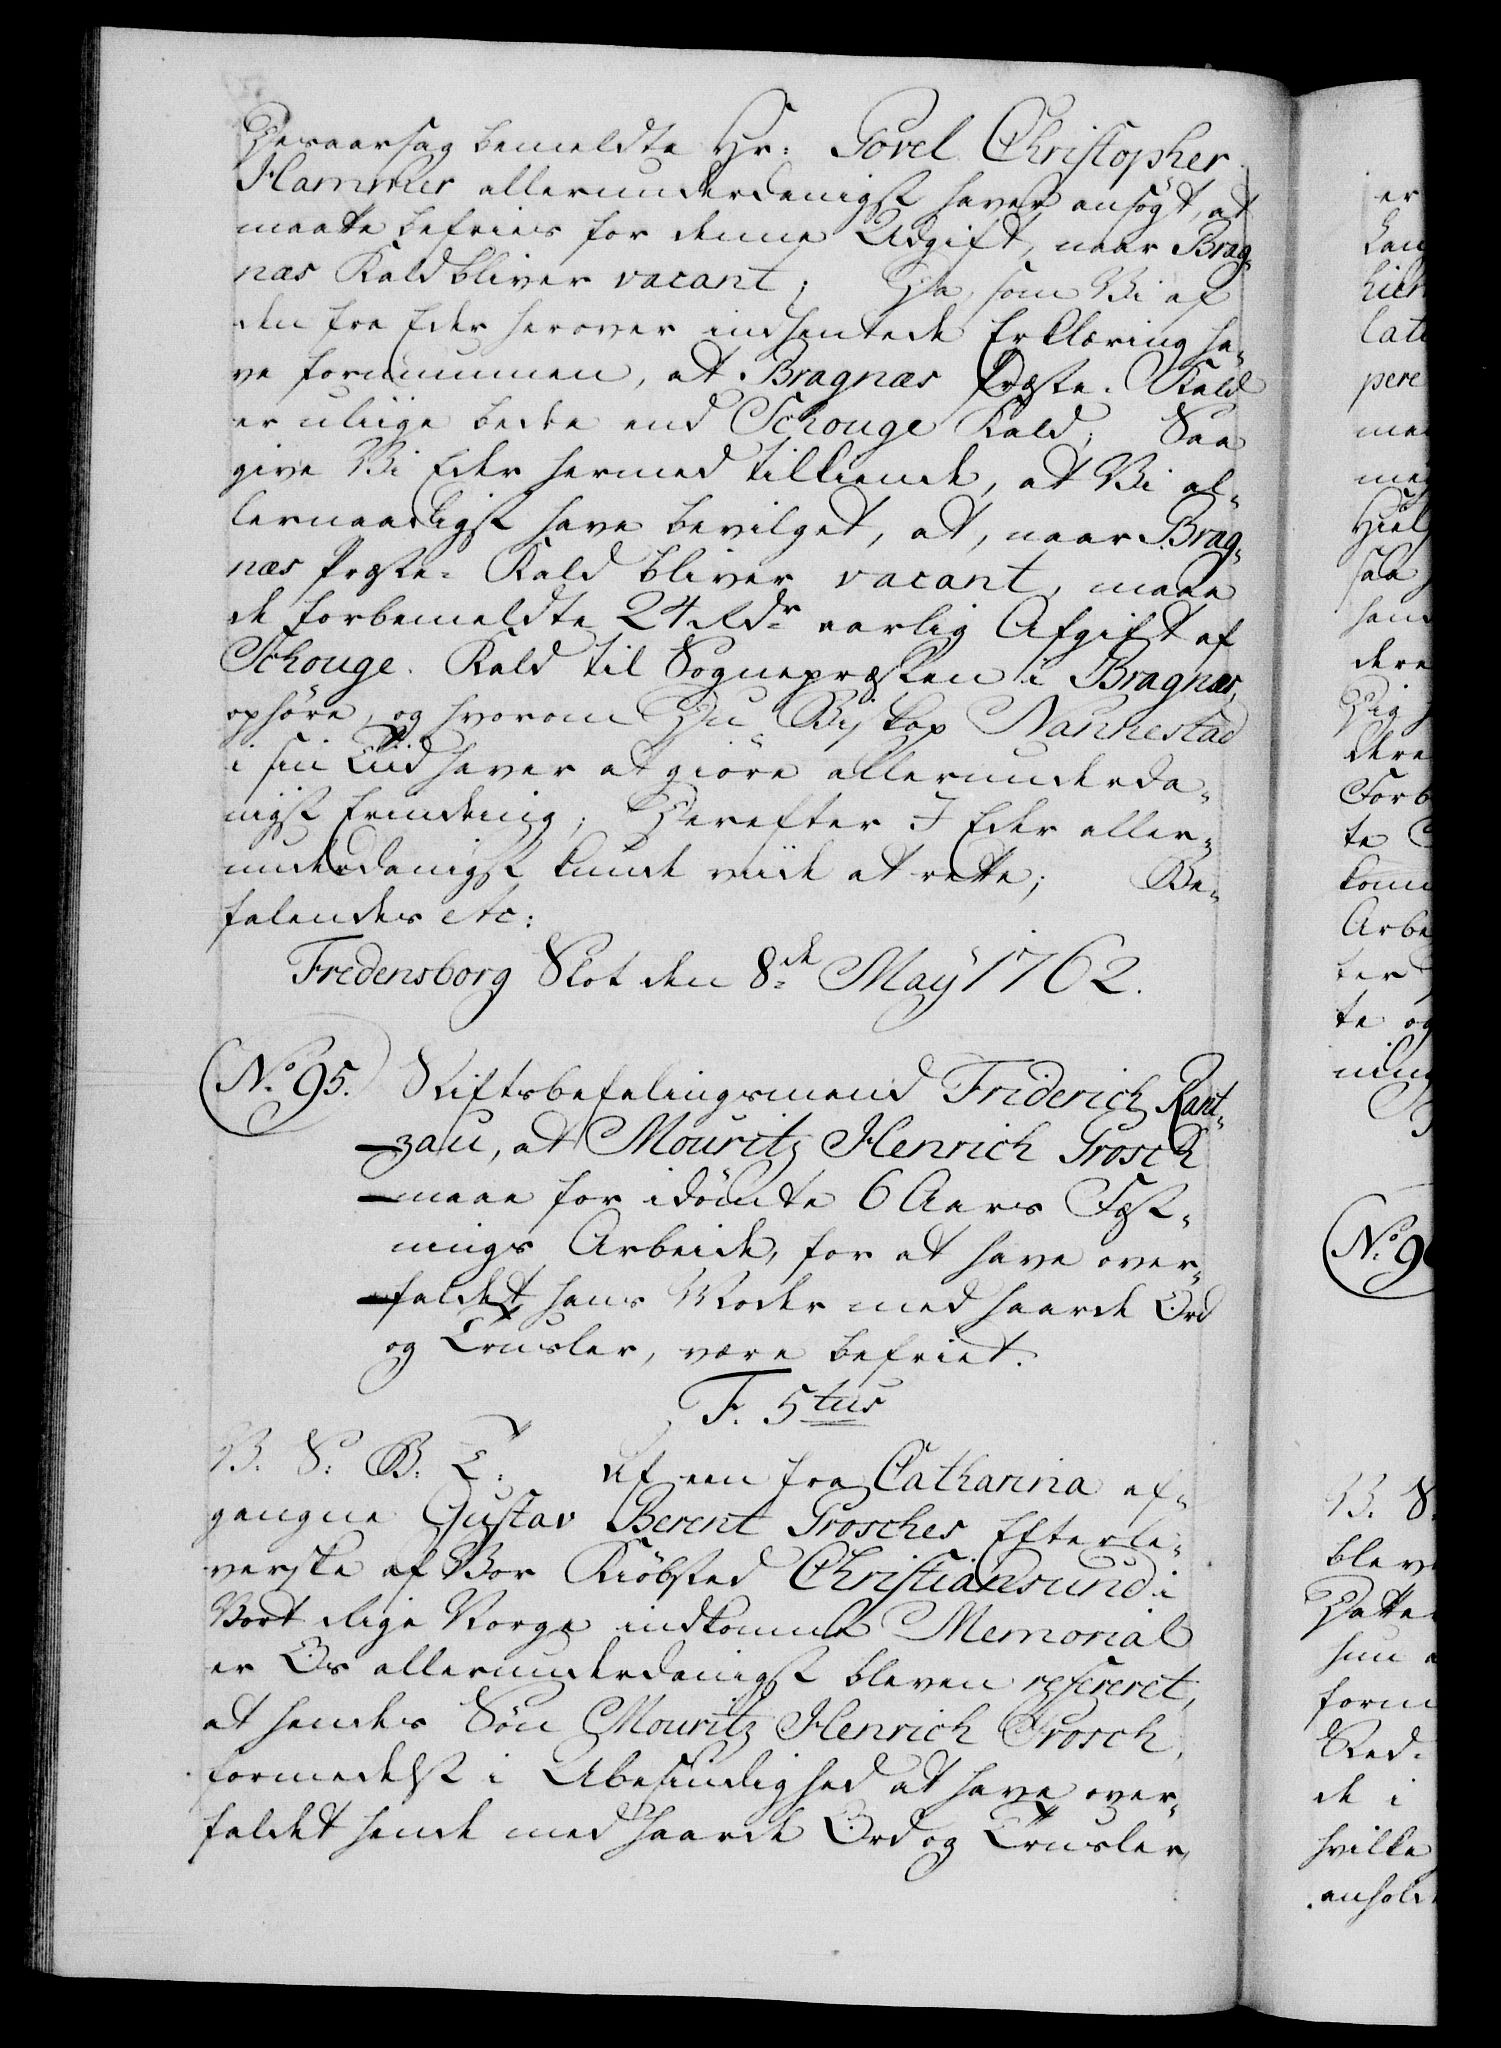 Desaarsag bemeldte Hr: Povel Christopher
Hammer allerunderdanigst haver ansögt, at
maatte befries for denne Udgift, naar Brag-
næs Kald bliver vacant; Da, som Vi af
den fra Eder herover indhentede Erklæring ha-
ve fornummen, at Bragnæs Præste-Kald
er uliige bedre end Schouge Kald; Saa
give Vi Eder hermed tilkiende, at Vi al-
lernaadigst have bevilget, at, naar Brag-
næs Præste-Kald bliver vacant, maae
de forbemeldte 24 Rdr aarlig Afgift af
Schouge Kald til Sognepræsten i Bragnæs,
ophöre, og hvorom Du Biskop Nannestad
i sin Tiid haver at giöre allerunderda-
nigst Erindring; Derefter I Eder aller-
underdanigst kunde viide at rette; Be-
falendes etc:
Fredensborg Slot den 8de May 1762.
No. 95. Stiftsbefalingsmand Friderich Rant-
zau, at Mouritz Henrich Grosch
maae for idömte 6 Aars Fæst-
nings Arbeide, for at have over-
faldet hans Moder med haarde Ord
og Trusler, være befriet.
F. 5tus
V. S. G. T. Af een fra Catharina af-
gangne Gustav Berent Grosches Efterle-
verske af Vor Kiöbsted Christiansund i
Vort Rige Norge indkomne Memorial
er Os allerunderdanigst bleven refereret,
at hendes Sön Mouritz Henrich Grosch,
formedelst i Ubesindighed at have over-
faldet hende med haarde Ord og Trusler,
No. 9